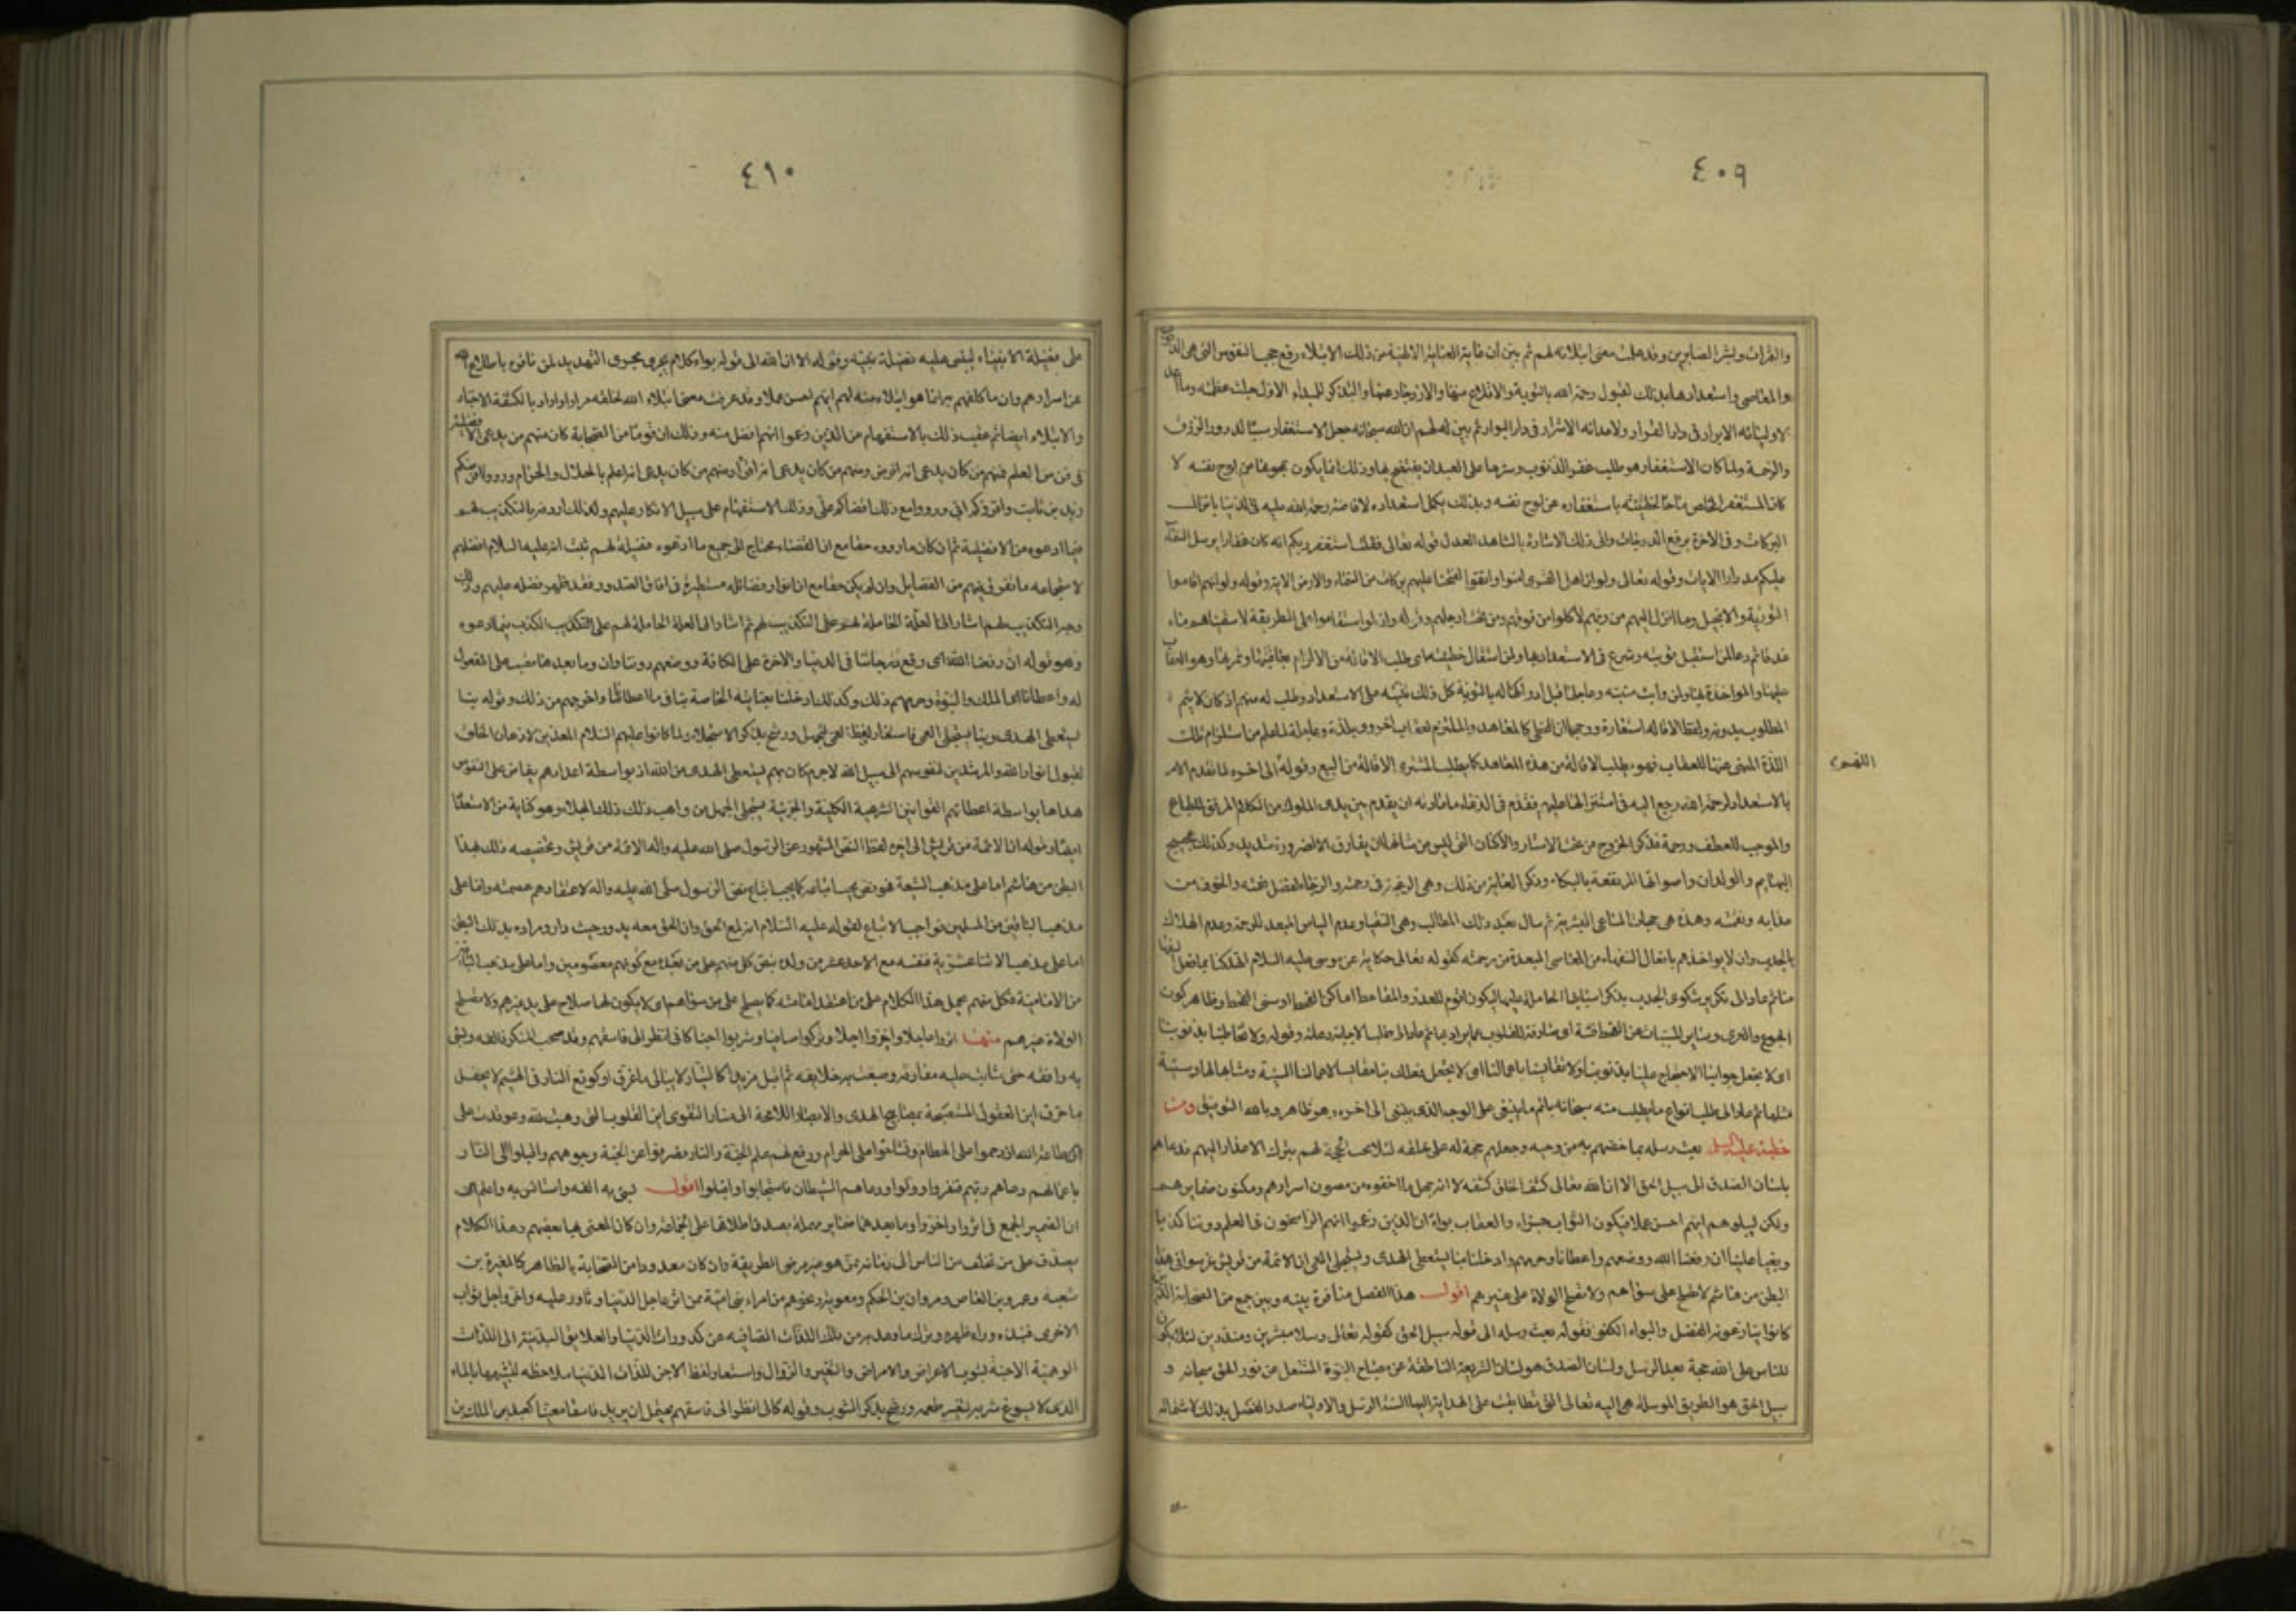 ٤٠٩
والثمرات وبشر الصابرين وقد علمت معنى ابتلائه لهم ثم بين ان غاية العناية الالهية من ذلك الابتلاء رفع حجب النفوس التى هى الذنوب
والمعاصى واستعدادها بذلك لقبول رحمة الله بالتوبة والاقلاع عنها والازدجار عنها والتذكر للمبداء الاول جلت عظمته وما اعد
لاوليائه الابرار فى دار القرار ولاعدائه الاشرار فى دار البوار ثم بين لهم ان الله سبحانه جعل الاستغفار سببا لدرور الرزق
والرحمة ولما كان الاستغفار هو طلب غفر الذنوب وسترها على العبد ان يفتضح بها وذلك انما يكون بمحوها من لوح نفسه لا
كان المستغفر المخلص ماحيا لخطيئته باستغفاره عن لوح نفسه وبذلك يكمل استعداده لافاضة رحمة الله عليه فى الدنيا بانزال
البركات وفى الاخرة برفع الدرجات والى ذلك الاشارة بالشاهد العدل قوله تعالى فقلت استغفروا ربكم انه كان غفارا يرسل السماء
عليكم مدرارا الايات وقوله تعالى ولو ان اهل القرى امنوا واتقوا لفتحنا عليهم بركات من السماء والارض الاية وقوله ولو انهم اقاموا
التورية والانجيل وما انزل اليهم من ربهم لاكلوا من فوقهم ومن تحت ارجلهم وقوله وان لو استقاموا على الطريقة لاسقيناهم ماء
غدقا ثم دعا لمن استقبل توبته وشرع فى الاستعداد بها ولمن استقال خطيئته اى طلب الاقالة من الالزام بعاقبتها وثمرتها وهو العقاب
عليها والمواخذة بها ولمن وايت منيته وعاجلها قبل ادراكها له بالتوبة كل ذلك تنبيه على الاستعداد وطلب له منهم اذ كان لا يتم
المطلوب بدونه ولفظ الاقالة استعارة ووجهها ان المخطى كالمعاهد والملتزم لعقاب اخروى بلذة عاجلة لما علم من استلزام تلك
اللذة المنهى عنها للعقاب فهو يطلب الاقالة من هذه المعاهدة كما يطلب المشترى الاقالة من البيع وقوله الى اخره لما تقدم الامر
اللهم
بالاستعداد لرحمة الله رجع اليه فى استنزالها عليهم فقدم فى الدعاء ما عادته ان يقدم بين يدى الملوك من الكلام المرقق للطباع
والموجب للعطف ورحمة فذكر الخروج من تحت الاستار والاكنان التى ليس من شانها ان يفارق الا لضرورة شديدة وكذلك عجيج
البهايم والولدان واصواتها المرتفعة بالبكاء وذكر الغاية من ذلك وهى الرغبة فى رحمته والرجاء لفضل نعمته والخوف من
عذابه ونقمته وهذه هى جهات المساعى البشرية ثم سال بعد ذلك المطالب وهى السقيا وعدم الياس المبعد للرحمة وعدم الهلاك
بالجدب وان لا يواخذهم بافعال السفهاء من المعاصى المبعدة من رحمته كقوله تعالى حكاية عن موسى عليه السلام اتهلكنا بما فعل السفهاء
منا ثم عاد الى تكرير شكوى الجدب بذكر اسبابها الحاملة عليها ليكون اقوم للعذر والمقاحط اماكن القحط او سنى القحط وظاهر كون
الجوع والعرى وساير المسببات عن القحط فتنة اى صارفة للقلوب عما يراد بها ثم عاد الى طلب الاجابة وعدله وقوله ولا تخاطبنا بذنوبنا
اى لا تجعل جوابنا الاحتجاج علينا بذنوبنا ولا تقايسنا باعمالنا اى لا تجعل فعلك بنا مقايسا لاعمالنا السيئة ومشابها لها وسيئة
مثلها ثم عاد الى طلب انواع ما يطلب منه سبحانه باتم ما ينبغى على الوجه الذى ينبغى الى اخره وهو ظاهر وبالله التوفيق ومن
خطبة عليه السلم بعث رسله بما خصهم به من وحيه وجعلهم حجة له على خلقه لئلا تجب الحجة لهم بترك الاعذار اليهم فدعاهم
بلسان الصدق الى سبيل الحق الا ان الله تعالى كشف الخلق كشفة لا انه جهل ما اخفوه من مصون اسرارهم ومكنون ضمايرهم
ولكن ليبلوهم ايهم احسن عملا فيكون الثواب جزاء والعقاب بواء اين الذين زعموا انهم الراسخون فى العلم دوننا كذبا
وبغيا علينا ان رفعنا الله ووضعهم واعطانا وحرمهم وادخلنا واخرجهم بنا يستعطى الهدى ويستجلى العمى ان الائمة من قريش غرسوا فى هذا
البطن من هاشم لا تصلح على سواهم ولا تصلح الولاة من غيرهم اقول هذا الفصل منافرة بينه وبين جمع من الصحابة الذين
كانوا ينازعونه الفضل والبواء الكفو فقوله بعث رسله الى قوله سبيل الحق كقوله تعالى رسلا مبشرين ومنذرين لئلا يكون
للناس على الله حجة بعد الرسل ولسان الصدق هو لسان الشريعة الناطقة عن مصباح النبوة المشتعل عن نور الحق سبحانه و
سبيل الحق هو الطريق الموصلة اليه تعالى التى تطابقت على الهداية اليها السنة الرسل والاولياء وصدر الفصل بذلك لاشتماله
٤١٠
على فضيلة الانبياء ليبنى عليه فضيلة نفسه وقوله الا ان الله الى قوله بواء كلام يجرى مجرى التهديد لمن نافره باطلاع الله
عن اسرارهم وان ما كلفهم به انما هو ابتلاء منه لهم ايهم احسن عملا وقد عرفت معنى ابتلاء الله لخلقه مرارا واراد بالكشفة الاختبار
والابتلاء ايضا ثم عقب ذلك بالاستفهام عن الذين زعموا انهم افضل منه وذلك ان قوما من الصحابة كان منهم من يدعى الافضلية
فى فن من العلم فمنهم من كان يدعى انه افرض ومنهم من كان يدعى انه اقرأ ومنهم من كان يدعى انه اعلم بالحلال والحرام ورووا افرضكم
زيد بن ثابت واقرؤكم ابى ورووا مع ذلك اقضاكم على وذلك الاستفهام على سبيل الانكار عليهم ولذلك اردفه بالتكذيب لهم
فيما ادعوه من الافضلية ثم ان كان ما رووه حقا مع ان القضاء محتاج الى جميع ما ادعوه فضيلة لهم ثبت انه عليه السلام افضلهم
لاستجماعه ما تفرق فيهم من الفضايل وان لم يكن حقا مع ان انوار فضائله مستطيرة فى افاق الصدور فقد ظهر فضله عليهم ولذلك
وجه التكذيب لهم اشار الى العلة الحاملة لهم على التكذيب لهم ثم اشار الى العلة الحاملة لهم على التكذيب الكذب فيما ادعوه
وهو قوله ان رفعنا الله اى رفع درجاتنا فى الدنيا والاخرة على الكافة ووضعهم دوننا وان وما بعدها نصب على المفعول
له واعطانا اى الملك والنبوة وحرمهم ذلك وكذلك ادخلنا بعنايته الخاصة بنا فيما اعطانا واخرجهم من ذلك وقوله بنا
يستعطى الهدى وبنا يستجلى العمى فاستعار لفظ العمى للجهل ورشح بذكر الاستجلاء ولما كانوا عليهم السلام المعدين لاذهان الخلق
لقبول انوار الله والمرشدين لنفوسهم الى سبيل الله لاجرم كان بهم يستعطى الهدى من الله اذ بواسطة اعدادهم يفاض على النفوس
هداها وبواسطة اعطائهم القوانين الشرعية الكلية والجزئية يستجلى الجهل من واهب ذلك الجلاء وهو كناية من الاستعداد
ايضا وقوله ان الائمة من قريش الى اخره لفظ النص المشهور عن الرسول صلى الله عليه واله الائمة من قريش وتخصيصه ذلك بهذا
البطن من هاشم اما على مذهب الشيعة فهو نص يجب اتباعه كما يجب اتباع نص الرسول صلى الله عليه واله لاعتقادهم عصمته واما على
مذهب الباقين من المسلمين فواجب الاتباع لقوله عليه السلام انه لمع الحق وان الحق معه يدور حيث دار ومراده بذلك البطن
اما على مذهب الاثنا عشرية فنفسه مع الاحد عشر من ولده بنص كل منهم على من بعده مع كونهم معصومين واما على مذهب الباقين
من الامامية فكل منهم يحمل هذا الكلام على من اعتقد امامته كما يصلح على من سواهم اى لا يكون لها صلاح على يد غيرهم ولا يصلح
الولاة غيرهم منها اثروا عاجلا واخروا اجلا وتركوا صافيا وشربوا اجنا كانى انظر الى فاسقهم وقد صحب المنكر فالفه وبسئ
به ووافقه حتى شابت عليه مفارقه وصبغت به خلايقه ثم اقبل مزبدا كالتيار لا يبالى ما غرق او كوقع النار فى الهشيم لا يحفل
ما حرق اين العقول المستصبحة بمصابيح الهدى والابصار اللامحة الى منار التقوى اين القلوب التى وهبت لله وعوقدت على
طاعة الله ازدحموا على الحطام وتشاحوا على الحرام ورفع لهم علم الجنة والنار فصرفوا عن الجنة وجوههم واقبلوا الى النار
باعمالهم ودعاهم ربهم فنفروا وولوا ودعاهم الشيطان فاستجابوا واقبلوا اقول بسئ به الفه واستانس به واعلم
ان الضمير الجمع فى اثروا واخروا وما بعدها ضماير مهملة يصدق اطلاقها على الجماعة وان كان المعنى بها بعضهم وهذا الكلام
يصدق على من تخلف من الناس الى زمانه ممن هو غير مرضى الطريقة وان كان معدودا من الصحابة بالظاهر كالمغيرة بن
شعبة وعمرو بن العاص ومروان بن الحكم ومعوية ونحوهم من امراء بنى امية ممن اثر عاجل الدنيا وثاور عليه واخر اجل ثواب
الاخرى فنبذه وراء ظهره وترك ما وعد به من تلك اللذات الصافية عن كدورات الدنيا والعلايق البدنية الى اللذات
الوهمية الاجنة بشوب الاعراض والامراض والتغير والزوال واستعار لفظ الاجن للذات الدنيا ملاحظة لتشبهها بالماء
الذى لا يسوغ شربه لتغير طعمه ورشح بذكر الشرب وقوله كانى انظر الى فاسقهم يحتمل ان يريد فاسقا معينا كعبد الملك بن